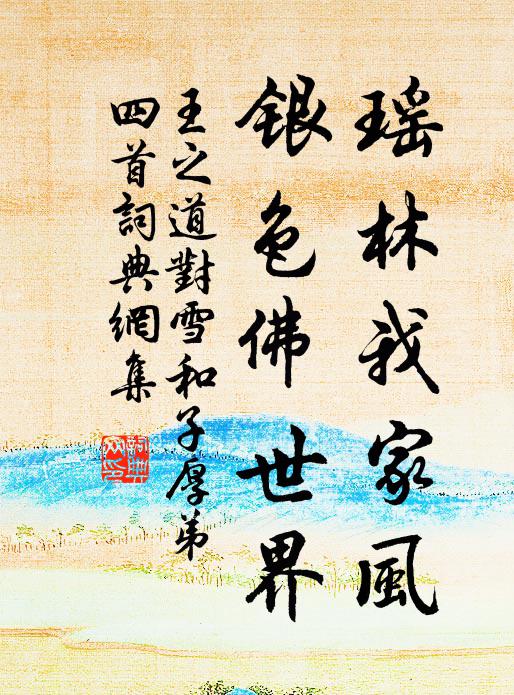 瑶林我家風
銀色佛世界
王之道對雪和子厚弟
四首詞典網集